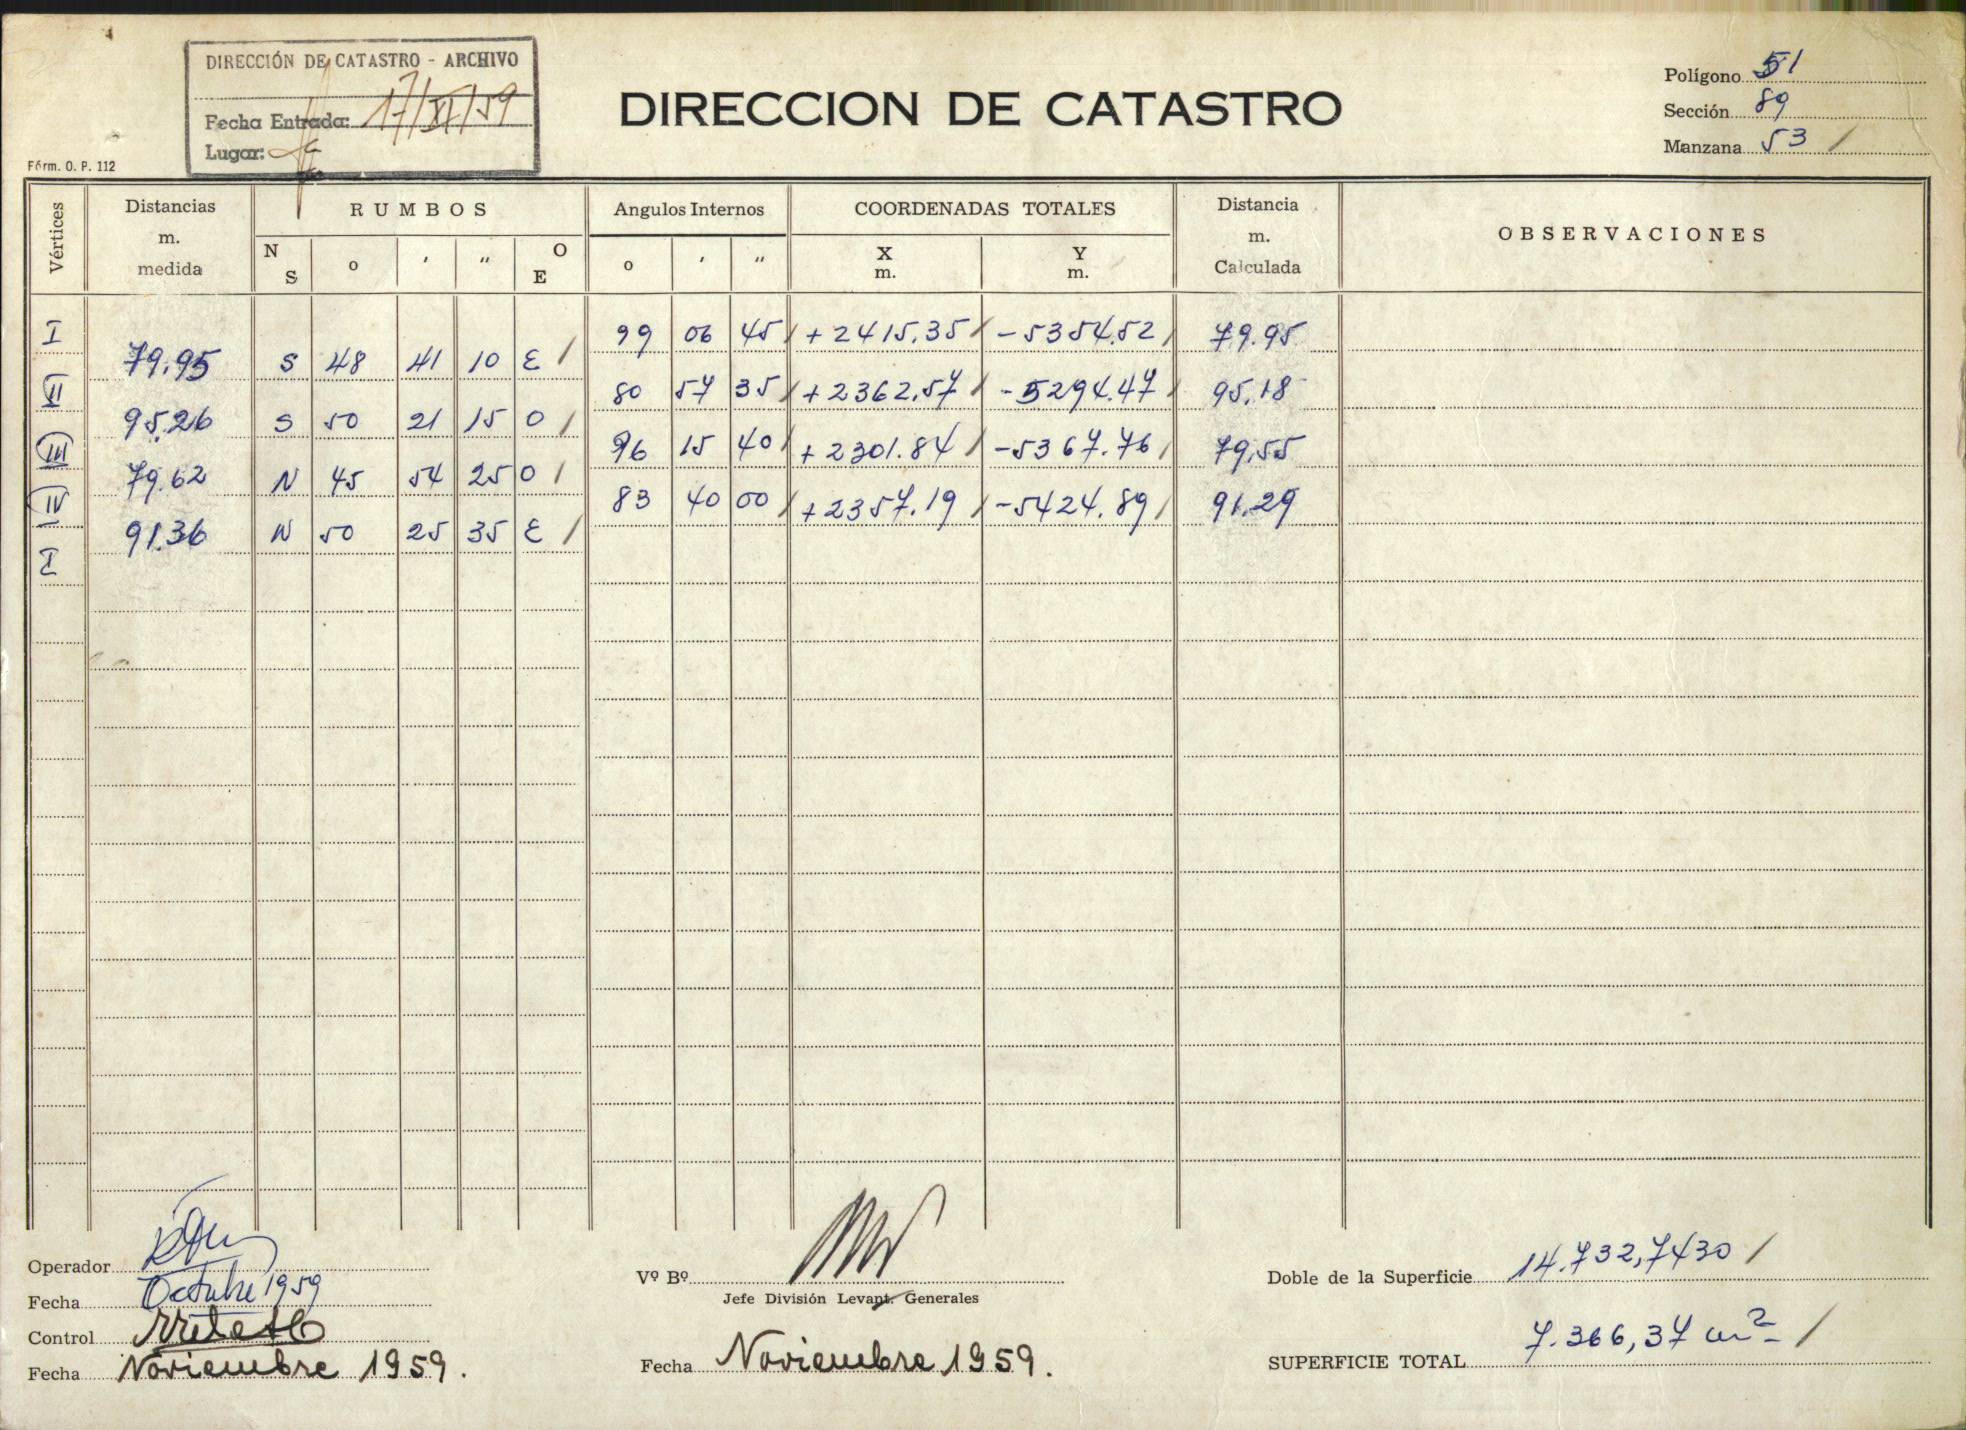 DIRECCIÓN DE CATASTRO - ARCHIVO
Fecha Entrada: 17/XI/59
Lugar:
DIRECCION DE CATASTRO
Polígono 51
Sección 89
Manzana 53 /
Fórm. O. P. 112
Vértices
Distancias m. medida
RUMBOS
N S o ' " O E
Angulos Internos
o ' "
COORDENADAS TOTALES
X m. Y m.
Distancia m. Calculada
OBSERVACIONES
I 99 06 45 / +2415.35 / -5354.52 / 79.95
79.95 S 48 41 10 E /
II 80 57 35 / +2362.57 / -5294.47 / 95.18
95.26 S 50 21 15 O /
III 96 15 40 / +2301.84 / -5367.76 / 79.55
79.62 N 45 54 25 O /
IV 83 40 00 / +2357.19 / -5424.89 / 91.29
91.36 N 50 25 35 E /
I
Operador
Fecha Octubre 1959
Control
Fecha Noviembre 1959.
Vº Bº
Jefe División Levant. Generales
Fecha Noviembre 1959.
Doble de la Superficie 14.732,7430 /
SUPERFICIE TOTAL 7.366,37 m² /